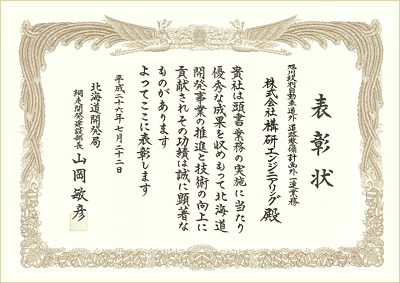 表彰状
旭川紋別自動車道外 道路整備計画外一連業務
株式会社構研エンジニアリング殿
貴社は頭書業務の実施に当たり
優秀な成果を収めもって北海道
開発事業の推進と技術の向上に
貢献されその功績は誠に顕著な
ものがあります
よってここに表彰します
平成二十六年七月二十二日
北海道開発局
網走開発建設部長 山岡敏彦